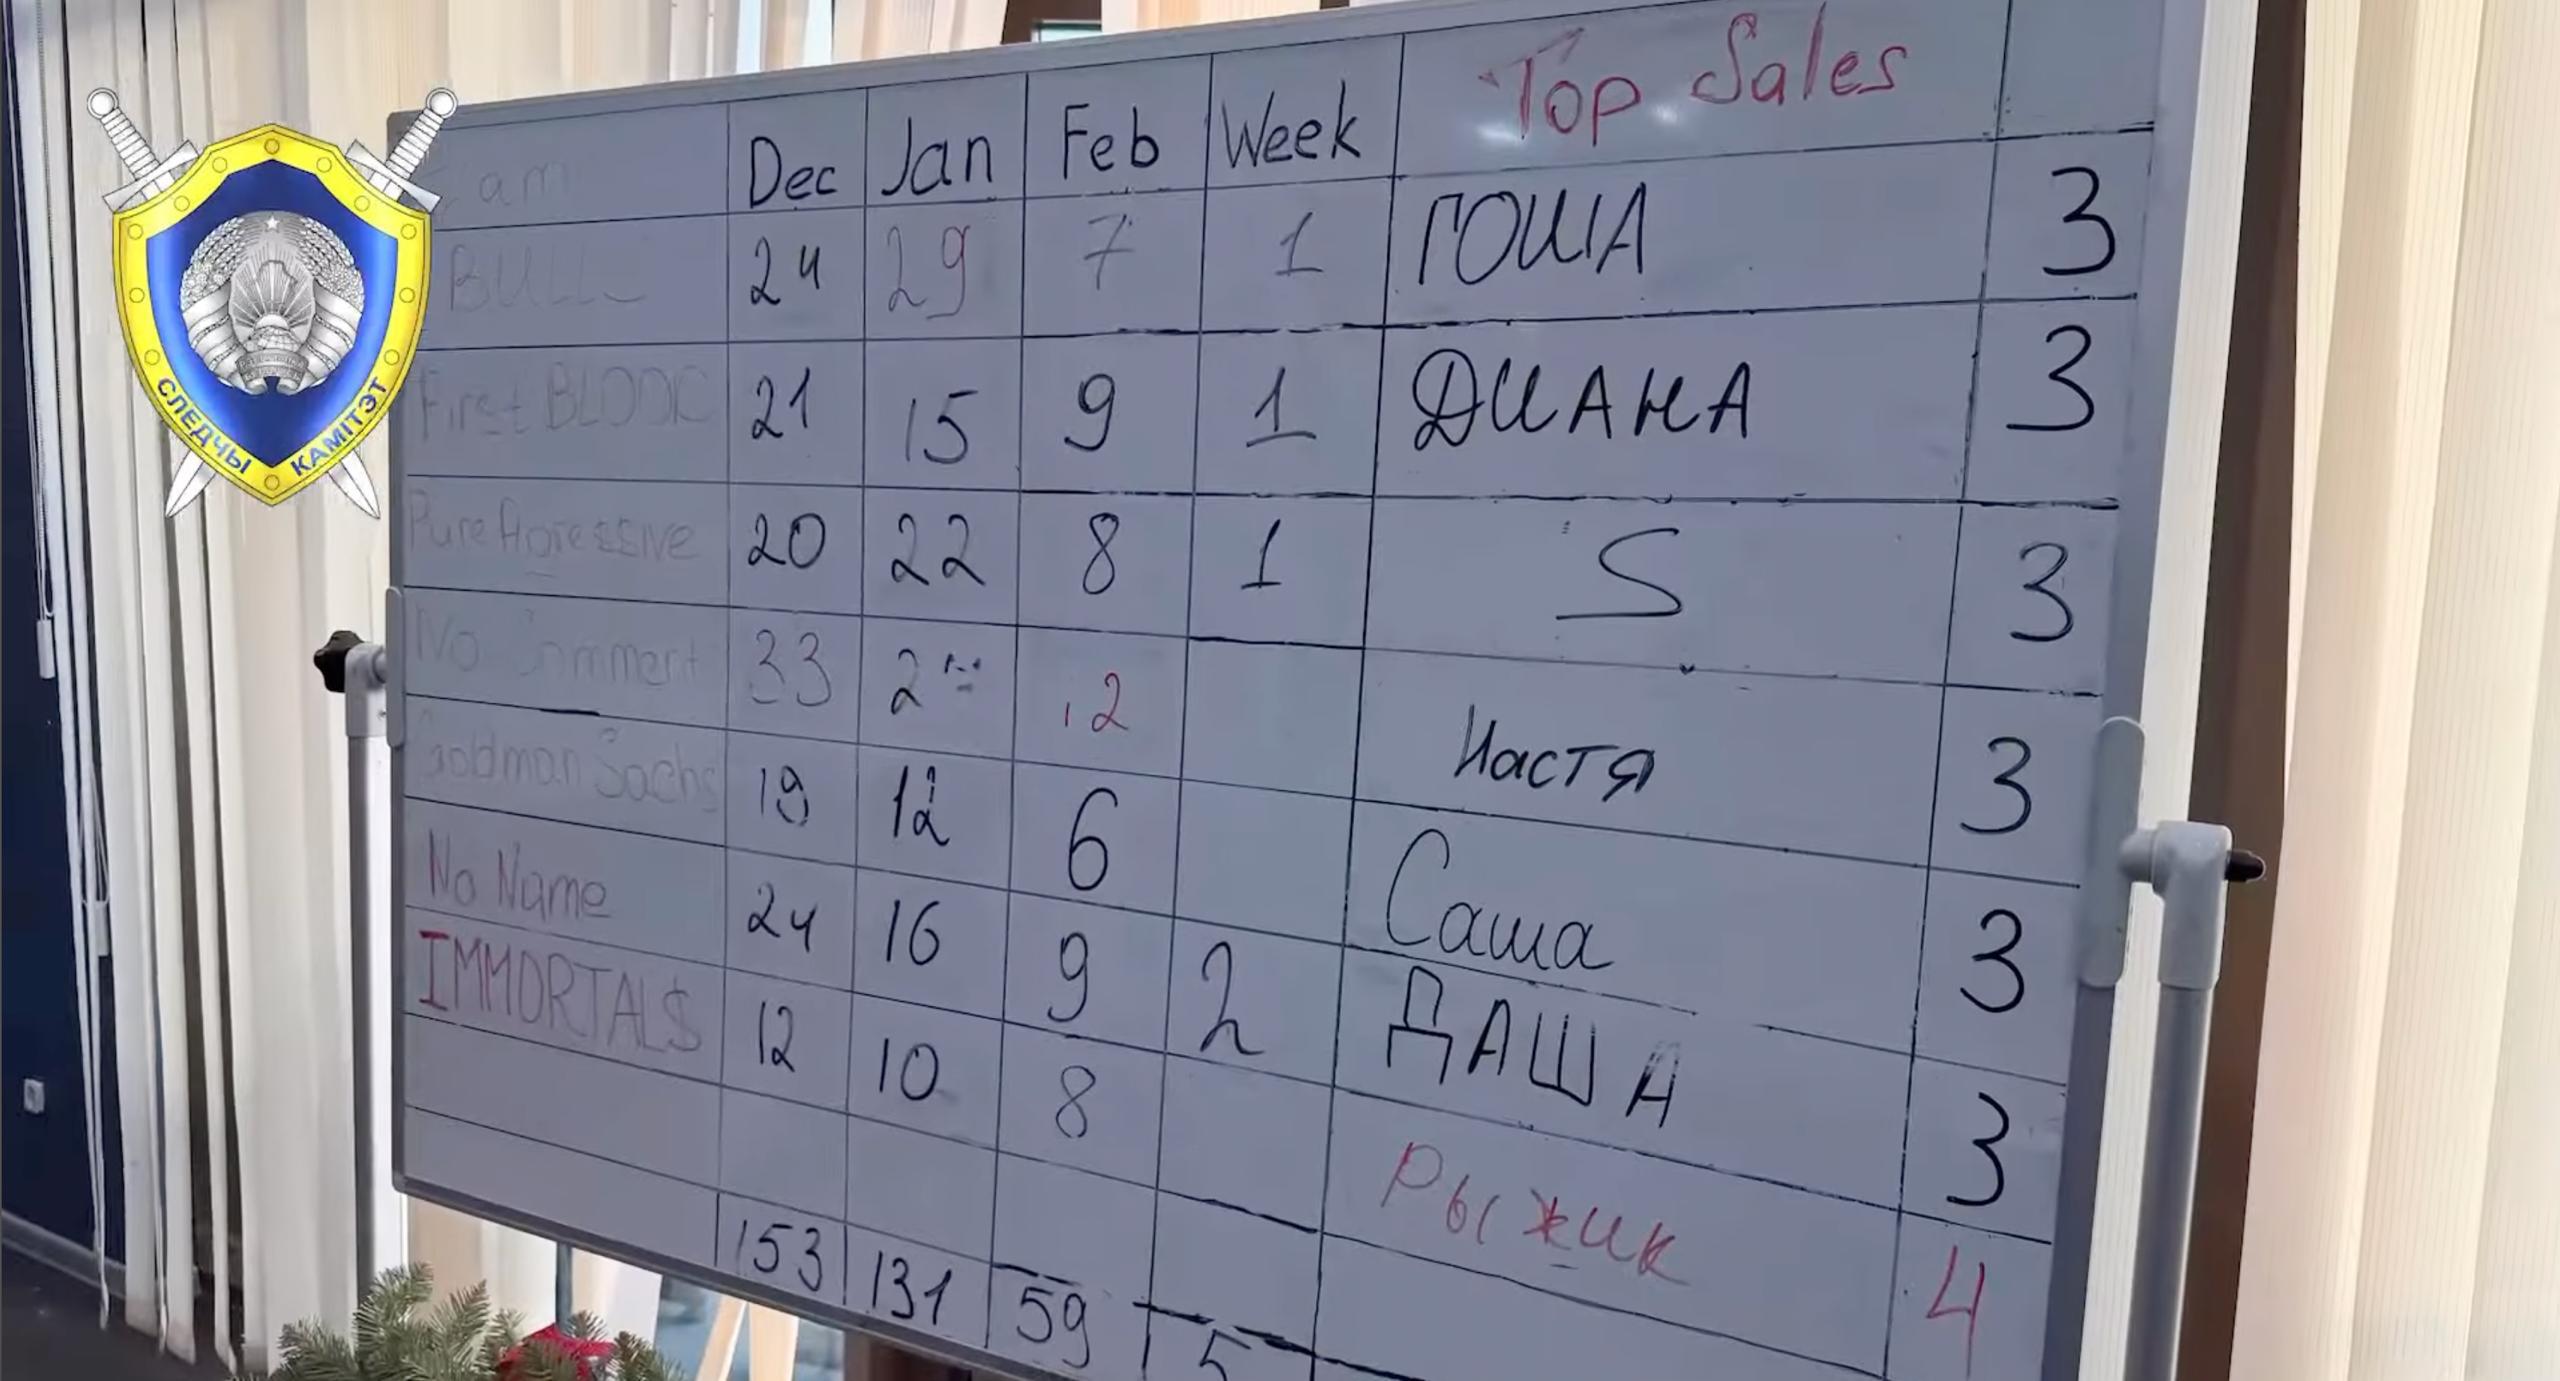 Dec Jan Feb Week Top Sales
BULL 24 29 7 1 ГОША 3
First BLOOD 21 15 9 1 ДИАНА 3
Pure Agressive 20 22 8 1 S 3
No Comment 33 2 12 Настя 3
Goldman Sachs 19 12 6 Саша 3
No Name 24 16 9 2 ДАША 3
IMMORTAL$ 12 10 8 Рыжик 4
153 131 59 5
СЛЕДЧЫ КАМІТЭТ